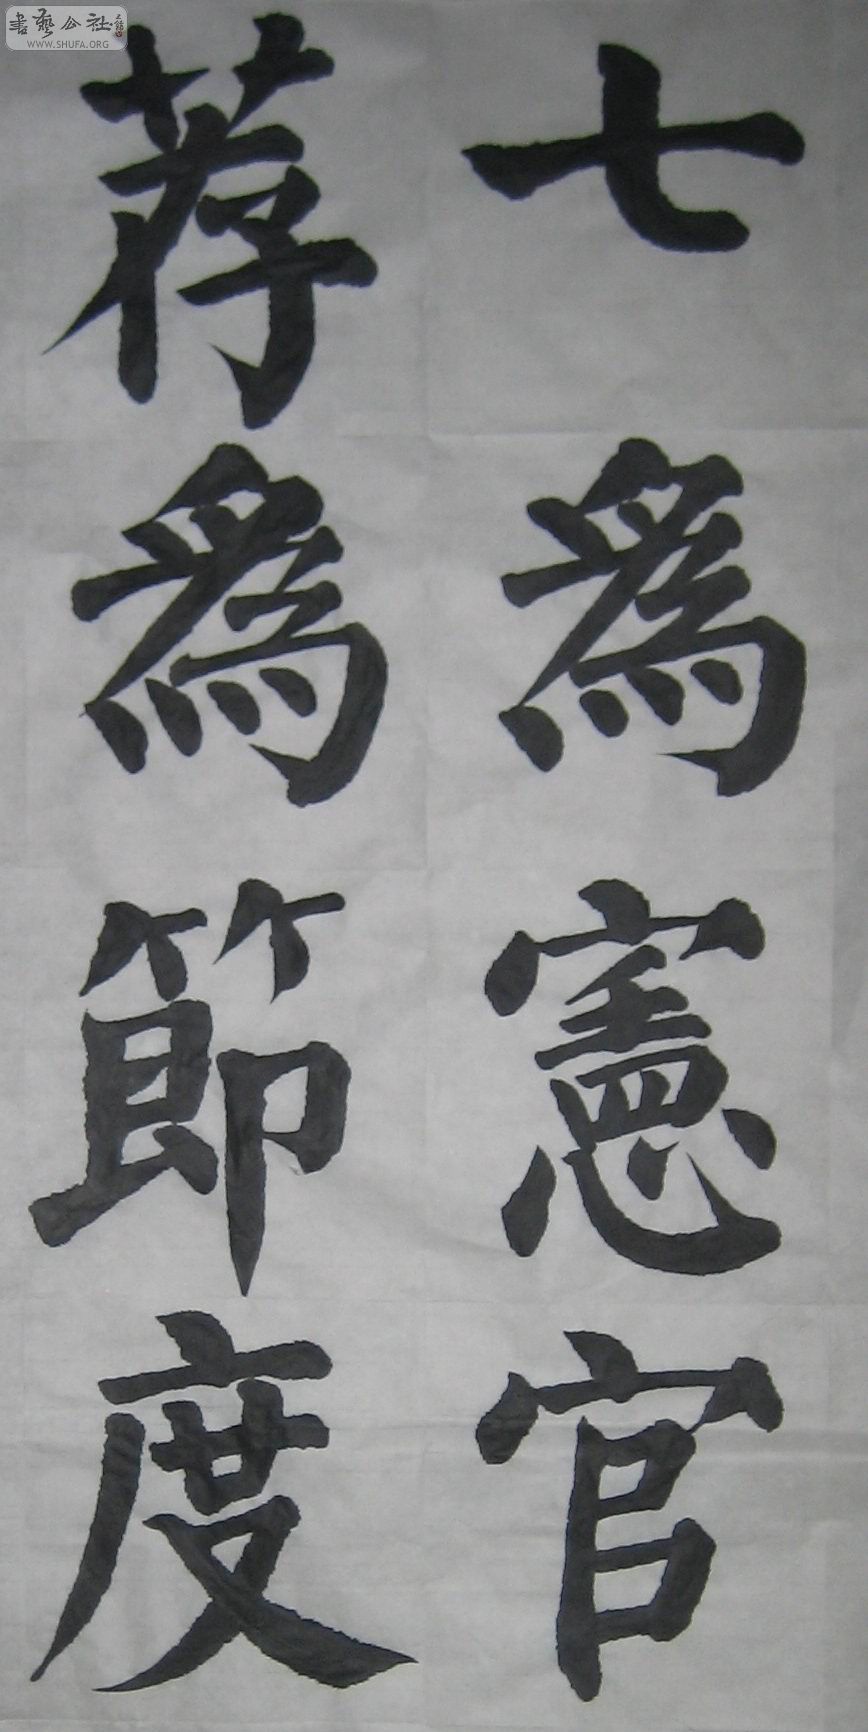 七為憲官
荐為節度
書藝公社
WWW.SHUFA.ORG